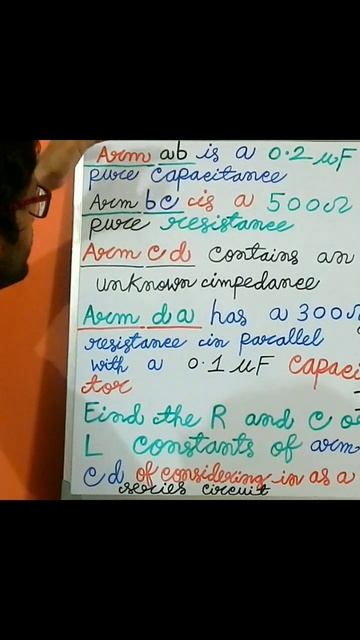 Arm ab is a 0.2 µF
pure capacitance
Arm bc is a 500Ω
pure resistance
Arm cd contains an
unknown impedance
Arm da has a 300Ω
resistance in parallel
with a 0.1 µF capaci
tor
Find the R and C or
L constants of arm
Cd of considering in as a
series circuit